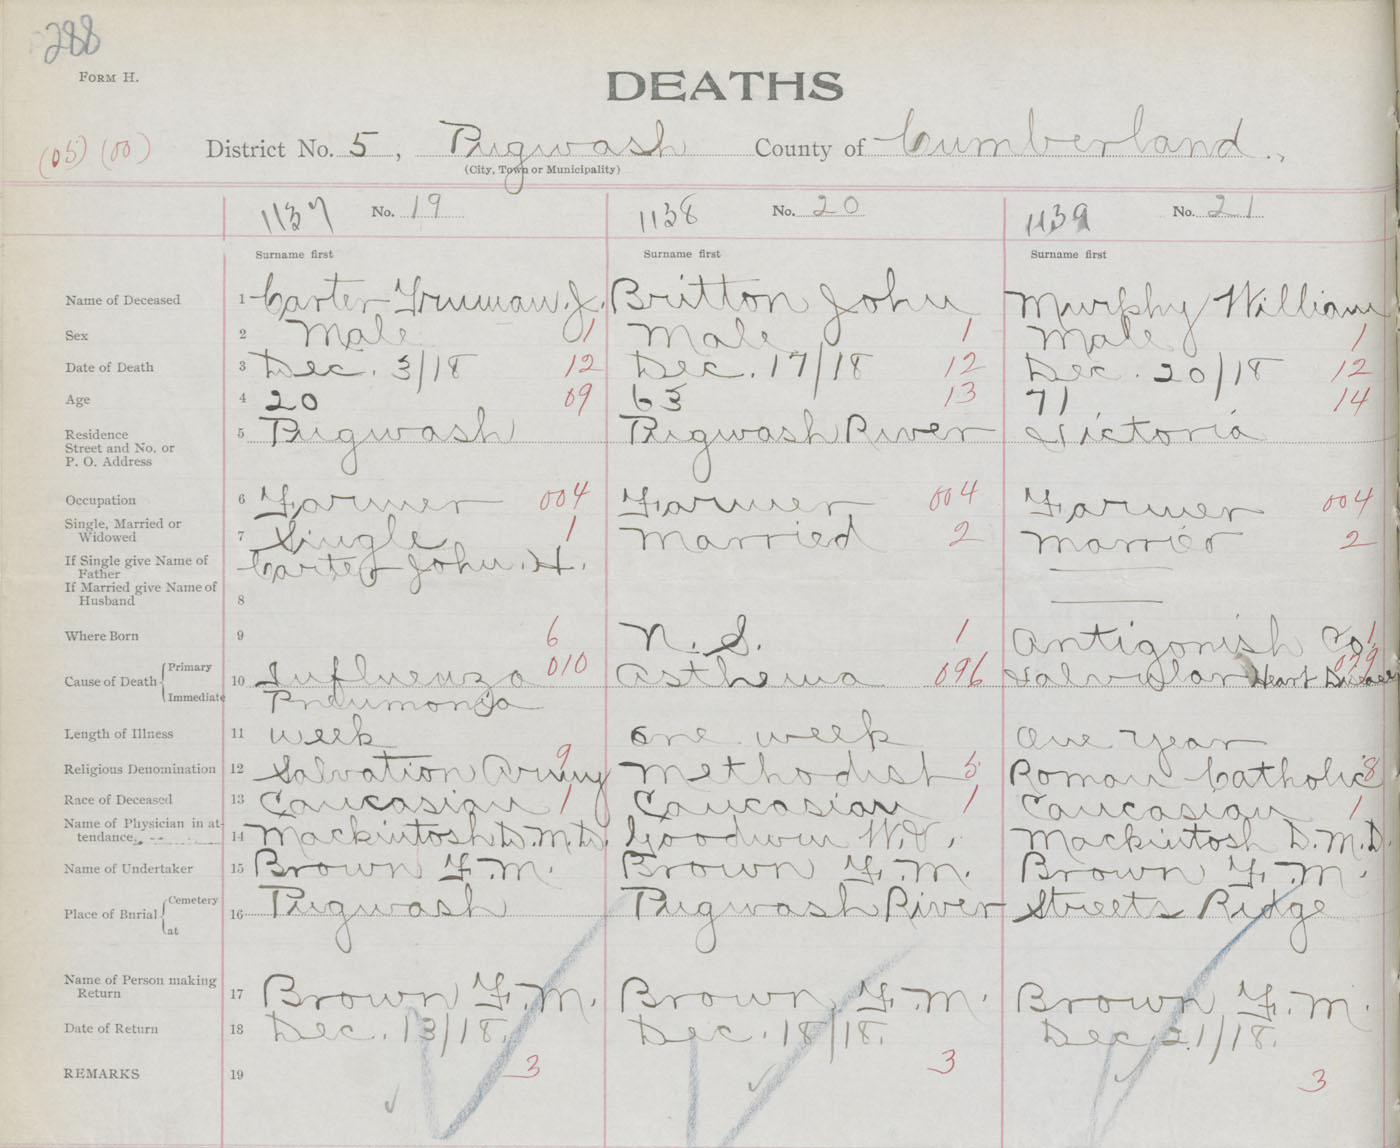 288
FORM H.
DEATHS
(05) (00) District No. 5, Pugwash County of Cumberland.,
(City, Town or Municipality)
1137 No. 19 1138 No. 20 1139 No. 21
Surname first Surname first Surname first
Name of Deceased 1 Carter Truman. J. Britton John Murphy William
Sex 2 Male 1 Male 1 Male 1
Date of Death 3 Dec. 3/18 12 Dec. 17/18 12 Dec. 20/18 12
Age 4 20 09 63 13 71 14
Residence 5 Pugwash Pugwash River Victoria
Street and No. or
P. O. Address
Occupation 6 Farmer 004 Farmer 004 Farmer 004
Single, Married or
Widowed 7 Single 1 Married 2 Married 2
If Single give Name of
Father Carter John. H.
If Married give Name of
Husband 8
Where Born 9 6 N. S. 1 Antigonish Co 1
Cause of Death { Primary
10 Influenza 010 Asthema 096 Valvular Heart Disease 079
Immediate Pneumonia
Length of Illness 11 week one week One Year
Religious Denomination 12 Salvation Army 9 Methodist 5 Roman Catholic 8
Race of Deceased 13 Caucasian 1 Caucasian 1 Caucasian 1
Name of Physician in at-
tendance, 14 Mackintosh D.M.D. Goodwin W.V. Mackintosh D.M.D.
Name of Undertaker 15 Brown F.M. Brown F.M. Brown F.M.
Place of Burial { Cemetery
16 Pugwash Pugwash River Streets Ridge
at
Name of Person making
Return 17 Brown F.M. Brown F.M. Brown F.M.
Date of Return 18 Dec. 13/18. Dec. 18/18. Dec 21/18.
REMARKS 19 3 3 3